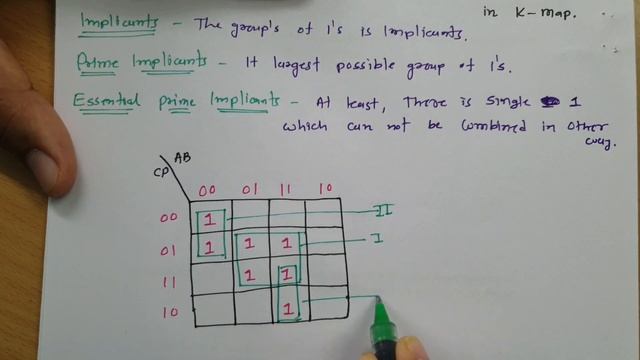 in K-map.
Implicants - The group's of 1's is Implicants.
Prime Implicants - It largest possible group of 1's.
Essential prime Implicants - At least, There is single 1
which can not be combined in other
way.
AB
CD
00 01 11 10
00 1 II
01 1 1 1 I
11 1 1
10 1